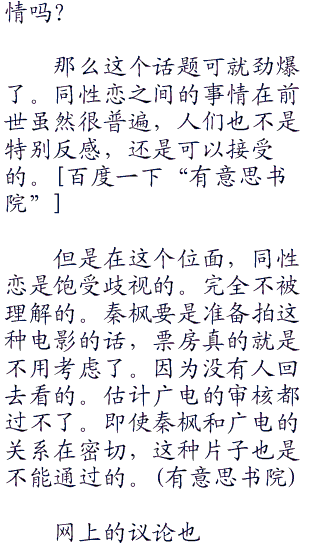 情吗？
那么这个话题可就劲爆
了。同性恋之间的事情在前
世虽然很普遍，人们也不是
特别反感，还是可以接受
的。[百度一下“有意思书
院”]
但是在这个位面，同性
恋是饱受歧视的。完全不被
理解的。秦枫要是准备拍这
种电影的话，票房真的就是
不用考虑了。因为没有人回
去看的。估计广电的审核都
过不了。即使秦枫和广电的
关系在密切，这种片子也是
不能通过的。(有意思书院)
网上的议论也